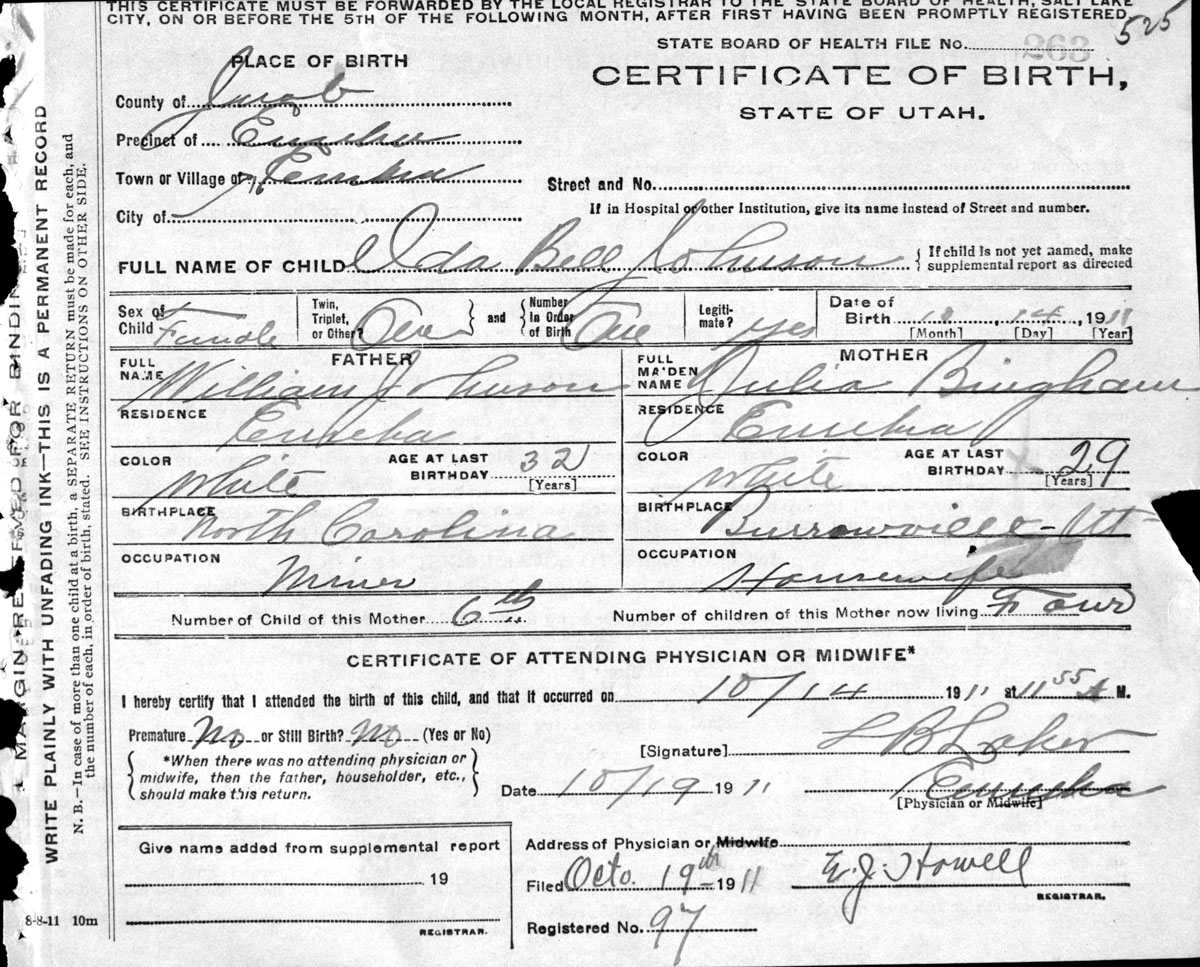 THIS CERTIFICATE MUST BE FORWARDED BY THE LOCAL REGISTRAR TO THE STATE BOARD OF HEALTH, SALT LAKE
CITY, ON OR BEFORE THE 5TH OF THE FOLLOWING MONTH, AFTER FIRST HAVING BEEN PROMPTLY REGISTERED
525
STATE BOARD OF HEALTH FILE NO. 263
CERTIFICATE OF BIRTH,
STATE OF UTAH.
PLACE OF BIRTH
County of Juab
Precinct of Eureka
Town or Village of Eureka
City of
Street and No.
If in Hospital or other Institution, give its name instead of Street and number.
FULL NAME OF CHILD Ida Bell Johnson { If child is not yet named, make supplemental report as directed
Sex of Child Female
Twin, Triplet, or Other? One } and { Number In Order of Birth One
Legitimate? yes
Date of Birth 10 14, 1911
[Month] [Day] [Year]
FATHER
FULL NAME William Johnson
RESIDENCE Eureka
COLOR White AGE AT LAST BIRTHDAY 32 [Years]
BIRTHPLACE North Carolina
OCCUPATION Miner
MOTHER
FULL MAIDEN NAME Julia Bingham
RESIDENCE Eureka
COLOR White AGE AT LAST BIRTHDAY 29 [Years]
BIRTHPLACE Burrowville-Ut
OCCUPATION Housewife
Number of Child of this Mother 6th Number of children of this Mother now living Four
CERTIFICATE OF ATTENDING PHYSICIAN OR MIDWIFE*
I hereby certify that I attended the birth of this child, and that it occurred on 10/14 1911 at 11 55 A M.
Premature No or Still Birth? No (Yes or No)
{ *When there was no attending physician or
midwife, then the father, householder, etc.,
should make this return. }
[Signature] L B Laker
Date 10/19 1911 Eureka
[Physician or Midwife]
Address of Physician or Midwife
Filed Octo. 19th 1911 E. J. Howell
REGISTRAR.
Registered No. 97
Give name added from supplemental report
19
REGISTRAR.
8-8-11 10m
MARGIN RESERVED FOR BINDING
WRITE PLAINLY WITH UNFADING INK—THIS IS A PERMANENT RECORD
N. B.—In case of more than one child at a birth, a SEPARATE RETURN must be made for each, and
the number of each, in order of birth, stated. SEE INSTRUCTIONS ON OTHER SIDE.